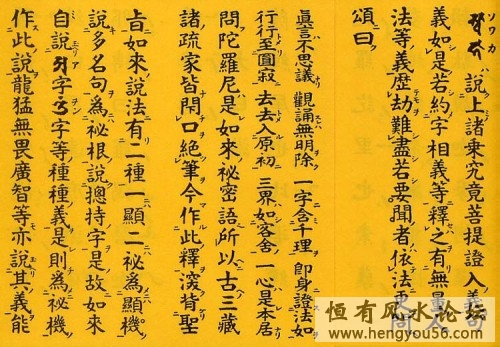 説上諸乘究竟菩提證入義句
義如是若約字相義等釋之有無量人
法等義歴劫難盡若要聞者依法更問
頌曰
眞言不思議 觀誦無明除 一字含千理 即身證法如
行行至圓寂 去去入原初 三界如客舍 一心是本居
問陀羅尼是如來祕密語所以古三藏
諸疏家皆閇口絶筆今作此釋深背聖
旨如來説法有二種一顯二祕爲顯機
説多名句爲祕根説總持字是故如來
自説字字等種種義是則爲祕機
作此説龍猛無畏廣智等亦説其義能
恒有风水论坛
www.hengyou56.com